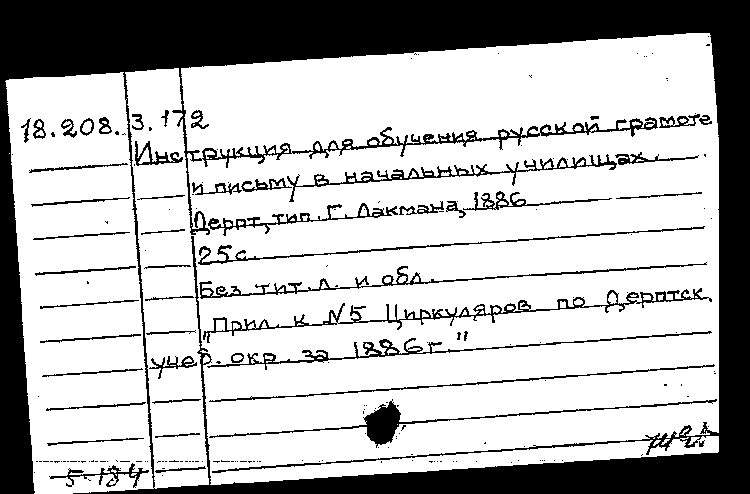 18.208.3.172
Инструкция для обучения русской грамоте
и письму в начальных училищах.
Дерпт, тип. Г. Лакмана, 1886
25с.
Без тит. л. и обл.
"Прил. к №5 Циркуляров по Дерптск.
учеб. окр. за 1886г."
5-184